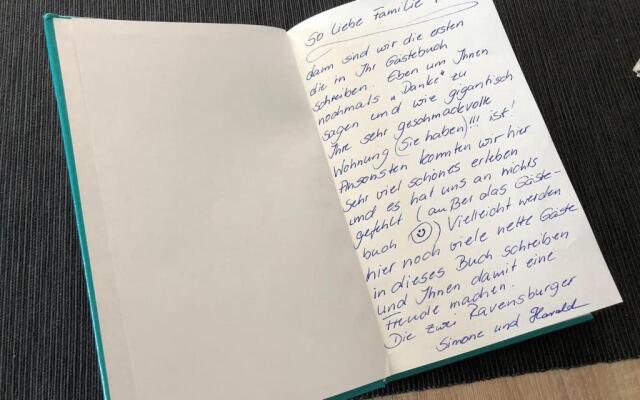 So liebe Familie
dann sind wir die ersten
die in Ihr Gästebuch
schreiben. Eben um Ihnen
nochmals „Danke" zu
sagen und wie gigantisch
Ihre sehr geschmackvolle
Wohnung (Sie haben)!!! ist!
Ansonsten konnten wir hier
sehr viel schönes erleben
und es hat uns an nichts
gefehlt (außer das Gäste-
buch ☺) Vielleicht werden
hier noch viele nette Gäste
in dieses Buch schreiben
und Ihnen damit eine
Freude machen.
Die zwei Ravensburger
Simone und Harald